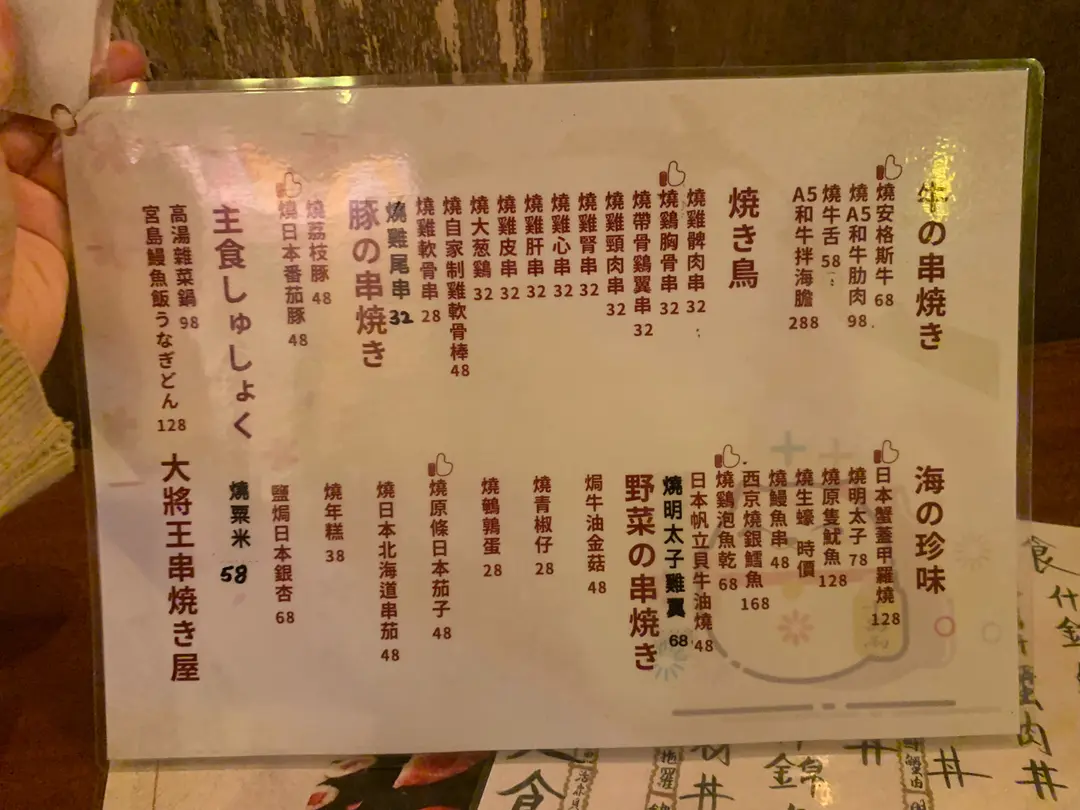 牛の串焼き
燒安格斯牛 68
燒A5和牛肋肉 98
燒牛舌 58
A5和牛拌海膽 288
焼き鳥
燒雞髀肉串 32
燒鷄胸骨串 32
燒帶骨鷄翼串 32
燒雞頸肉串 32
燒雞腎串 32
燒雞心串 32
燒雞肝串 32
燒雞皮串 32
燒大葱鷄 32
燒自家制雞軟骨棒 48
燒雞軟骨串 28
燒雞尾串 32
豚の串焼き
燒荔枝豚 48
燒日本番茄豚 48
主食しゅしょく
高湯雜菜鍋 98
宮島鰻魚飯うなぎどん 128
海の珍味
日本蟹蓋甲羅燒 128
燒明太子 78
燒原隻魷魚 128
燒生蠔 時價
燒鰻魚串 48
西京燒銀鱈魚 168
燒鷄泡魚乾 68
日本帆立貝牛油燒 48
燒明太子雞翼 68
野菜の串焼き
焗牛油金菇 48
燒青椒仔 28
燒鵪鶉蛋 28
燒原條日本茄子 48
燒日本北海道串茄 48
燒年糕 38
鹽焗日本銀杏 68
燒粟米 58
大將王串焼き屋
食
什錦
蟹肉丼
丼
錦
丼
食